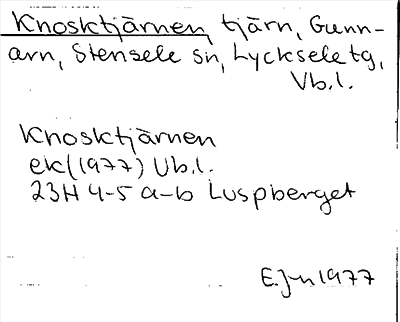 Knosktjärnen, tjärn, Gunn-
arn, Stensele sn, Lycksele tg,
Vb.l.
Knosktjärnen
ek(1977) Vb.l.
23H 4-5 a-b Luspberget
E.Jn 1977